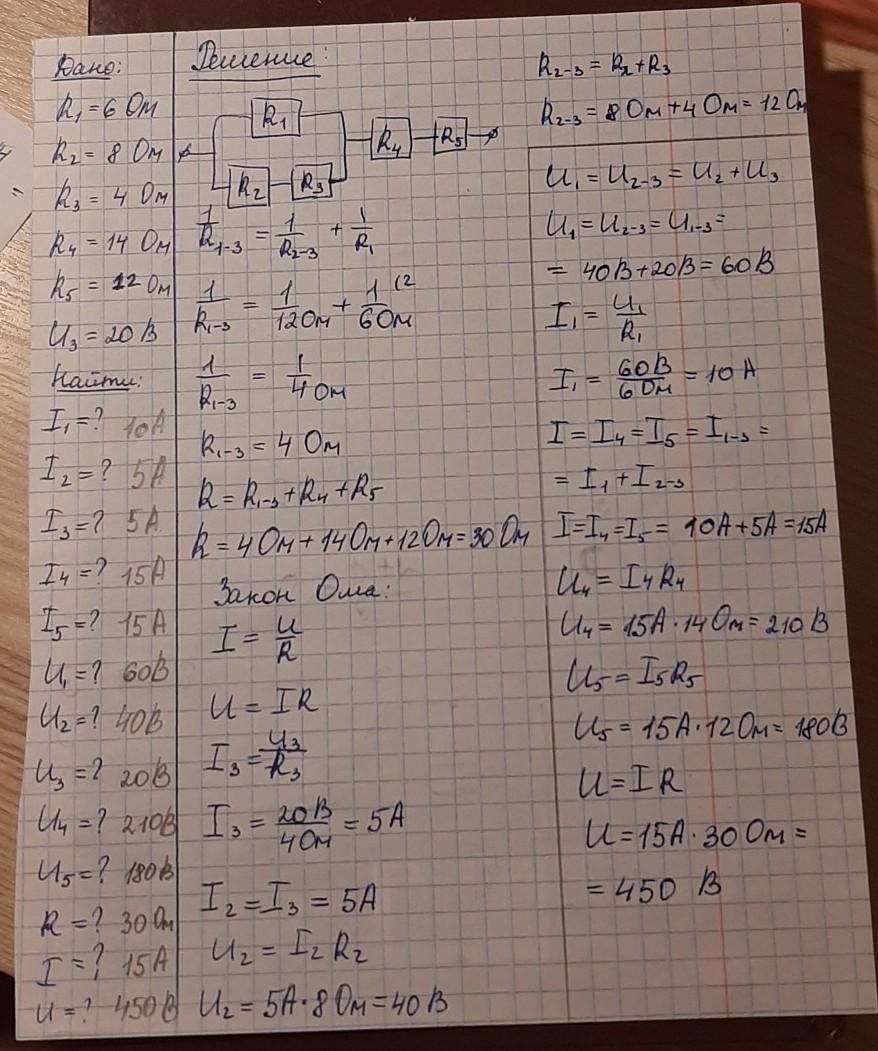 Дано:
R₁ = 6 Ом
R₂ = 8 Ом
R₃ = 4 Ом
R₄ = 14 Ом
R₅ = 12 Ом
U₃ = 20 В
Найти:
I₁ = ? 10А
I₂ = ? 5А
I₃ = ? 5А
I₄ = ? 15А
I₅ = ? 15А
U₁ = ? 60В
U₂ = ? 40В
U₃ = ? 20В
U₄ = ? 210В
U₅ = ? 180В
R = ? 30 Ом
I = ? 15А
U = ? 450В
Решение:
R₁
R₄ R₅
R₂ R₃
1/R₁₋₃ = 1/R₂₋₃ + 1/R₁
1/R₁₋₃ = 1/12Ом + 1/6Ом (2
1/R₁₋₃ = 1/4 Ом
R₁₋₃ = 4 Ом
R = R₁₋₃ + R₄ + R₅
R = 4 Ом + 14 Ом + 12 Ом = 30 Ом
Закон Ома:
I = U/R
U = IR
I₃ = U₃/R₃
I₃ = 20В/4Ом = 5А
I₂ = I₃ = 5А
U₂ = I₂ R₂
U₂ = 5А · 8 Ом = 40 В
R₂₋₃ = R₂ + R₃
R₂₋₃ = 8 Ом + 4 Ом = 12 Ом
U₁ = U₂₋₃ = U₂ + U₃
U₁ = U₂₋₃ = U₁₋₃ =
= 40В + 20В = 60В
I₁ = U₁/R₁
I₁ = 60В/6Ом = 10 А
I = I₄ = I₅ = I₁₋₃ =
= I₁ + I₂₋₃
I = I₄ = I₅ = 10А + 5А = 15А
U₄ = I₄ R₄
U₄ = 15А · 14 Ом = 210 В
U₅ = I₅ R₅
U₅ = 15А · 12 Ом = 180В
U = IR
U = 15А · 30 Ом =
= 450 В